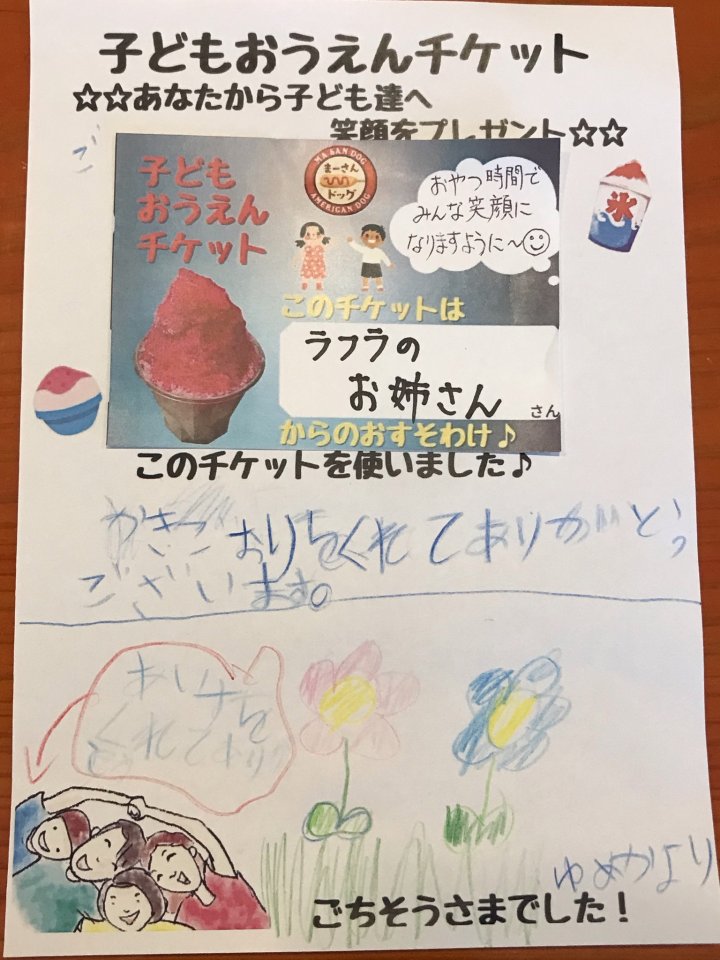 子どもおうえんチケット
☆☆あなたから子ども達へ
笑顔をプレゼント☆☆
ご
子ども
おうえん
チケット
MA-SAN DOG
まーさん
ドッグ
AMERICAN DOG
おやつ時間で
みんな笑顔に
なりますように〜
氷
このチケットは
ラフラの
お姉さん
さん
からのおすそわけ♪
このチケットを使いました♪
かきごおりをくれてありがとう
ございます。
くれてあり
ゆめかより
ごちそうさまでした!